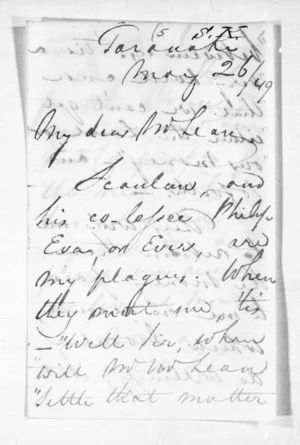 Taranaki
May 26/49
My dear McLean,
Scanlan, and
his co-lessee Philip
Evas, or Evers, are
my plagues. When
they meet me, 'tis
- "Well Sir, when
"will Mr McLean
"settle that matter